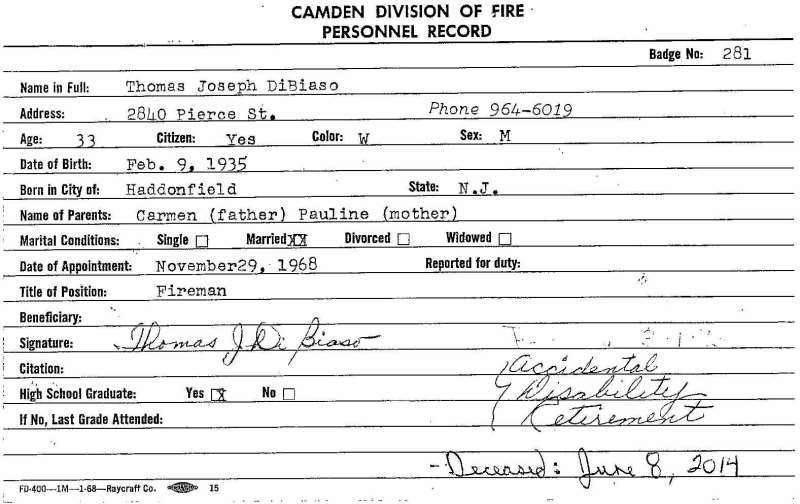 CAMDEN DIVISION OF FIRE
PERSONNEL RECORD
Badge No: 281
Name in Full: Thomas Joseph DiBiaso
Address: 2840 Pierce St. Phone 964-6019
Age: 33 Citizen: Yes Color: W Sex: M
Date of Birth: Feb. 9, 1935
Born in City of: Haddonfield State: N.J.
Name of Parents: Carmen (father) Pauline (mother)
Marital Conditions: Single Married XX Divorced Widowed
Date of Appointment: November29, 1968 Reported for duty:
Title of Position: Fireman
Beneficiary:
Signature: Thomas J Di Biaso
Citation: Accidental
High School Graduate: Yes X No Disability
If No, Last Grade Attended: Retirement
-Deceased: June 8, 2014
FD-400—1M—1-68—Raycraft Co. 15